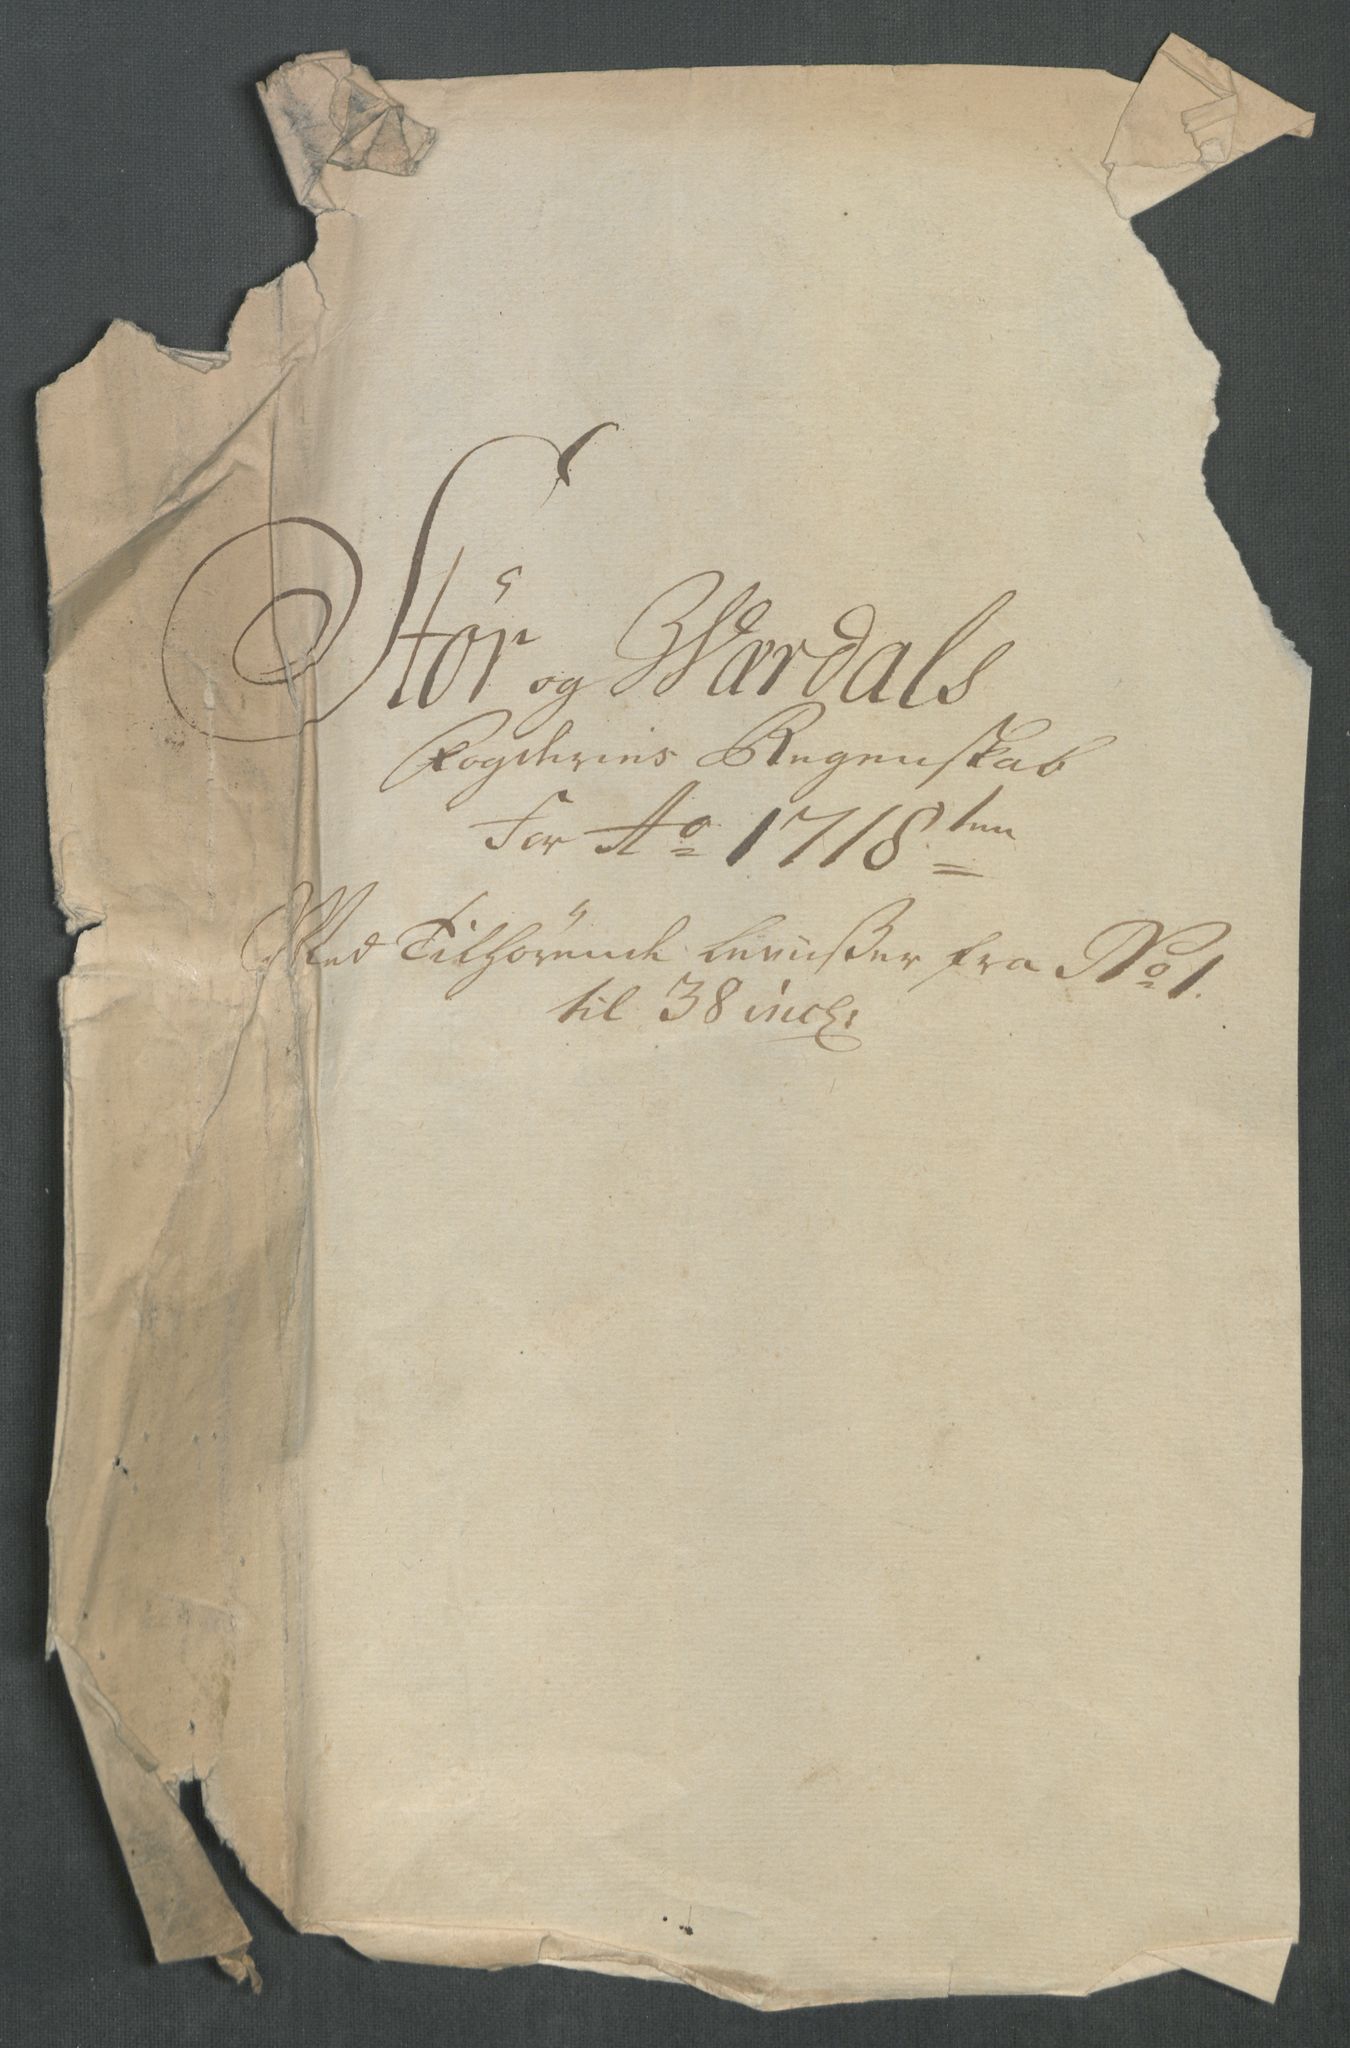 Stör og Wærdals
Fogderies Regenskab
For Ao 1718ten
Med Tilhörende beviißer fra No 1.
til 38 incl: